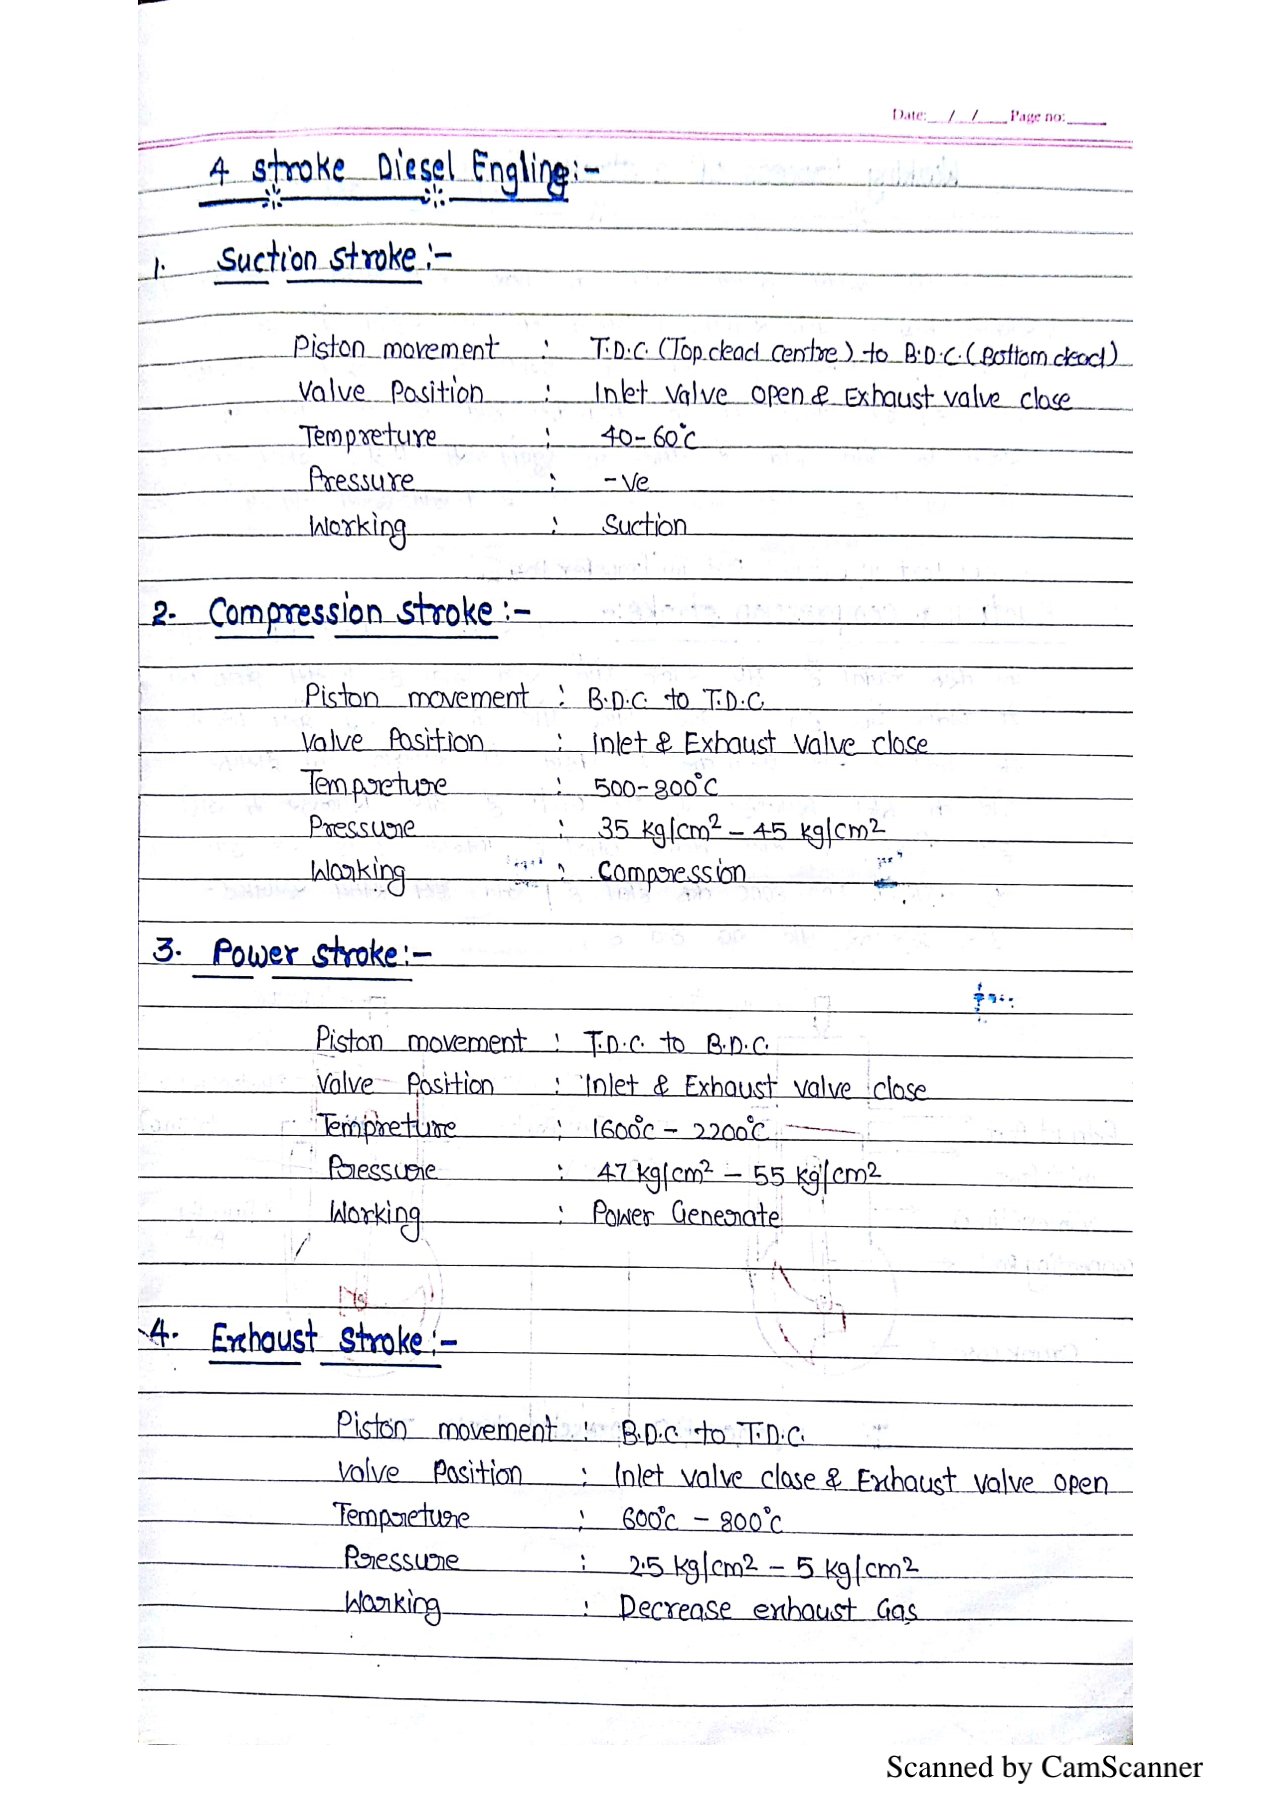 Date:__/__/____ Page no:______
4 Stroke Diesel Engling:-
1. Suction Stroke :-
Piston movement : T.D.C. (Top dead centre) to B.D.C. (Bottom dead)
Valve Position : Inlet Valve open & Exhaust valve close
Tempreture : 40-60°c
Pressure : -ve
Working : Suction
2- Compression stroke :-
Piston movement : B.D.C. to T.D.C
Valve Position : Inlet & Exhaust Valve close
Tempreture : 500-800°C
Pressure : 35 kg/cm² - 45 kg/cm²
Working : Compression
3. Power stroke:-
Piston movement : T.D.C. to B.D.C.
Valve Position : Inlet & Exhaust valve close
Tempreture : 1600°c - 2200°c
Pressure : 47 kg/cm² - 55 kg/cm²
Working : Power Generate
4. Exhaust Stroke:-
Piston movement : B.D.C to T.D.C.
Valve Position : Inlet valve close & Exhaust valve open
Tempreture : 600°c - 800°c
Pressure : 2.5 kg/cm² - 5 kg/cm²
Working : Decrease exhaust Gas
Scanned by CamScanner